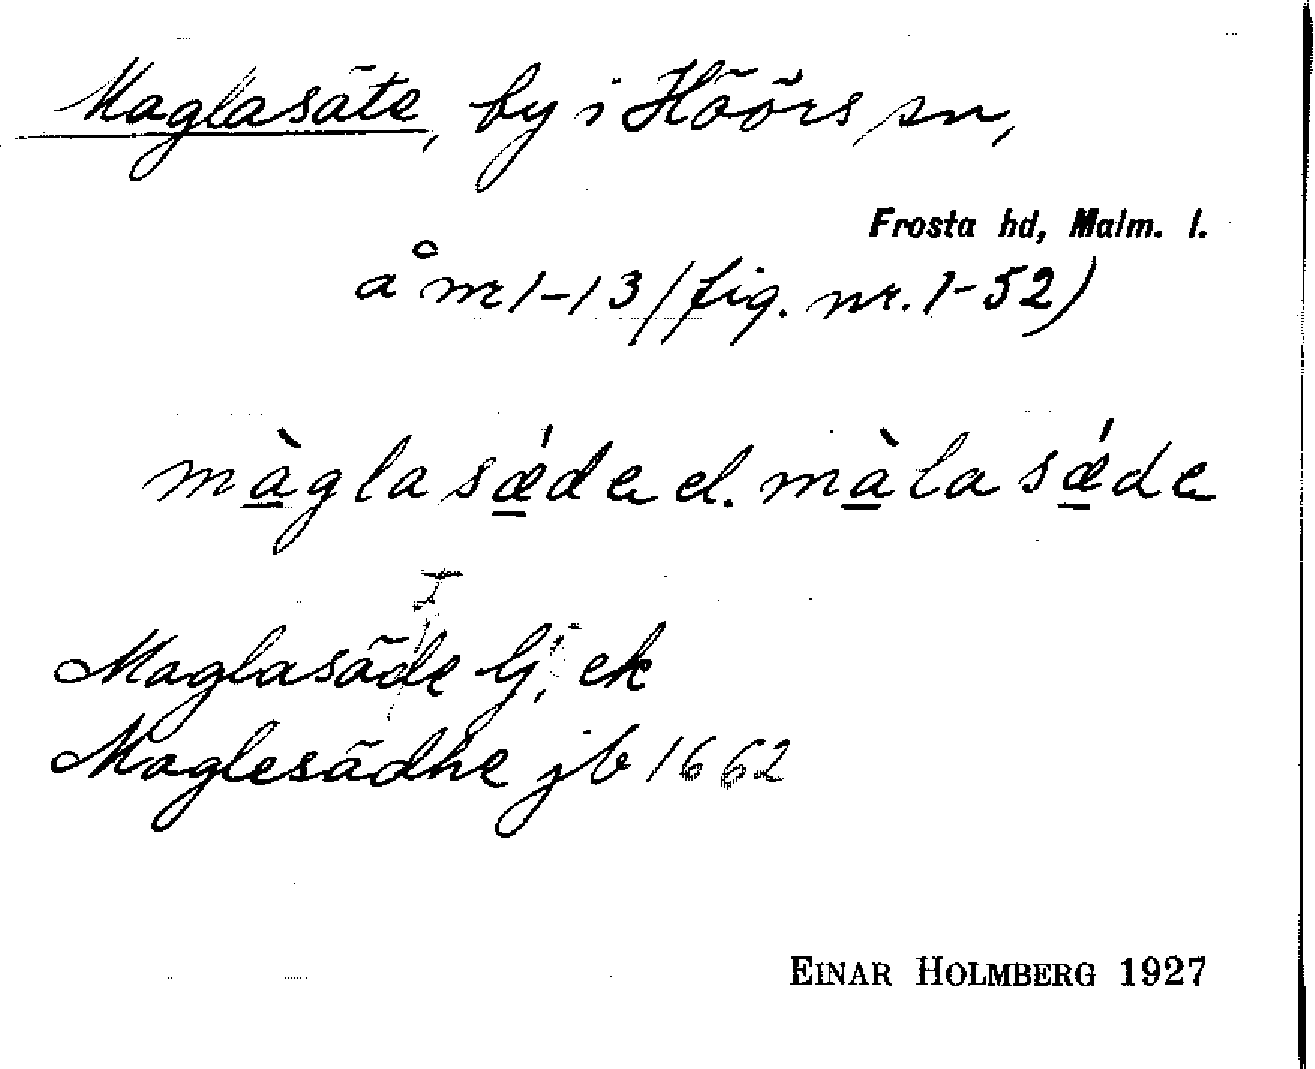 Maglasäte, by i Höörs sn,
Frosta hd, Malm. l.
å nr 1-13 (fig. nr. 1-52)
màglasǽde el. màlasǽde
Maglasäde Gj, ek
Maglesädhe jb 1662
EINAR HOLMBERG 1927